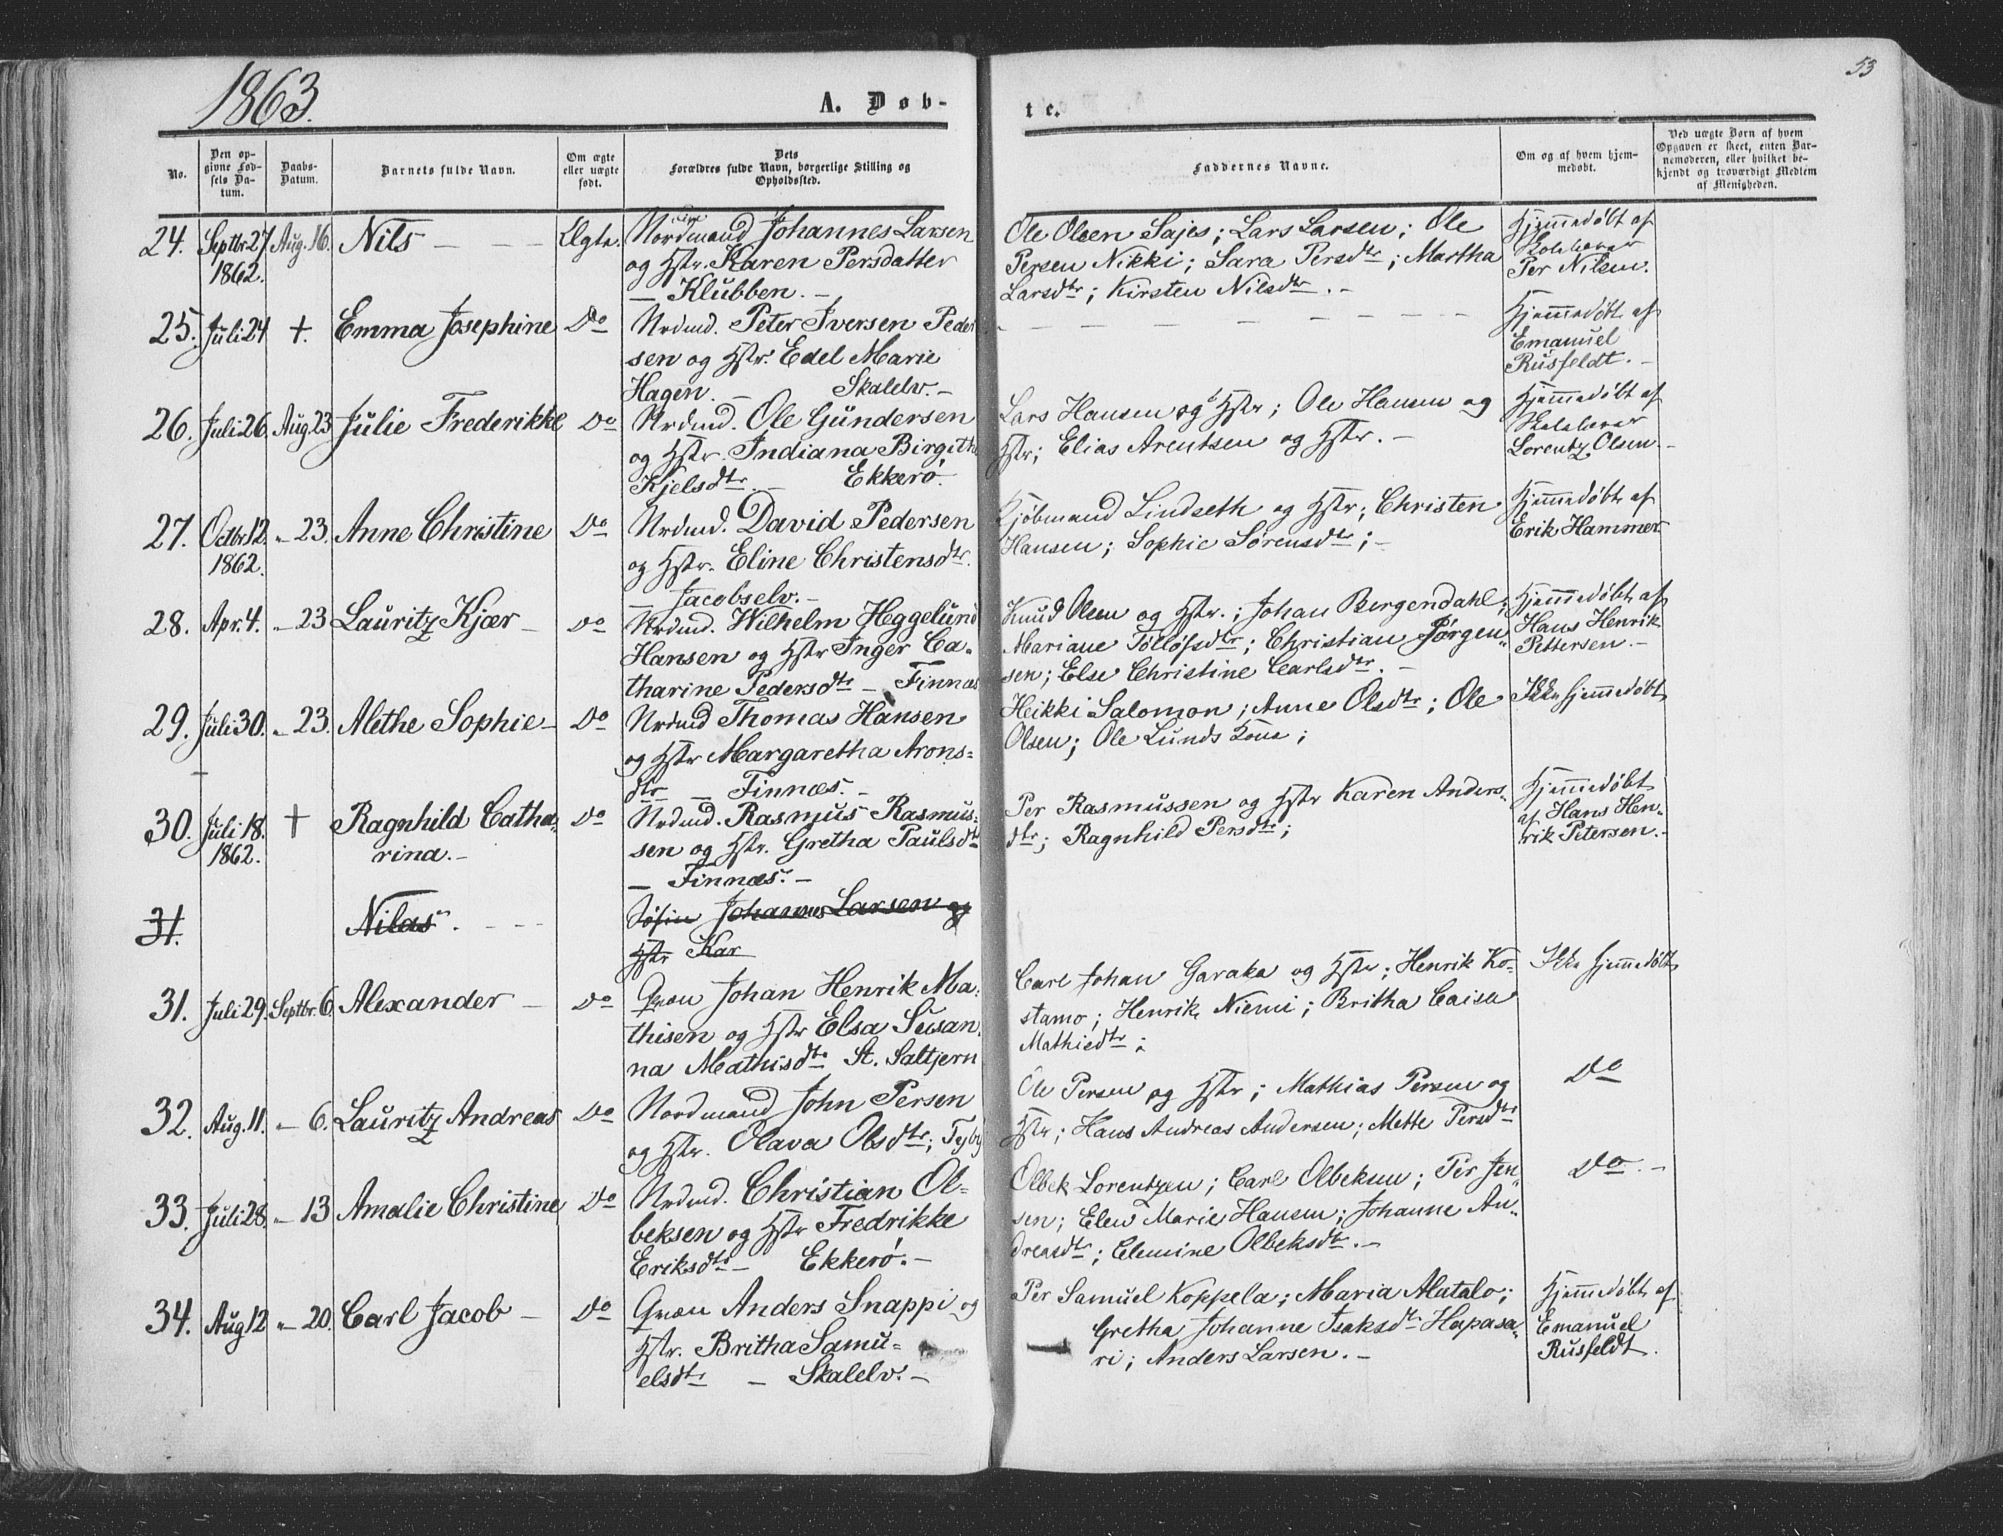 1863.
A. Døb-
te.
53
No.
Den op-
givne Fød-
sels Da-
tum.
Daabs-
Datum.
Barnets fulde Navn.
Om ægte
eller uægte
født.
Dets
Forældres fulde Navn, borgerlige Stilling og
Opholdssted.
Faddernes Navne.
Om og af hvem hjem-
medøbt.
Ved uægte Børn af hvem
Opgaven er skeet, enten Bar-
nemoderen, eller hvilket be-
kjendt og troværdigt Medlem
af Menigheden.
24. Septbr. 27 Aug. 16. Nils Ægte. Nordmand Johannes Larsen
1862.
og Hstr. Karen Persdatter
— Klubben. —
Ole Olsen Sajes; Lars Larsen; Ole
Persen Nikki; Sara Persdtr; Martha
Larsdtr; Kirsten Nilsdtr. —
Hjemmedøbt af
Per Nilsen.
25. Juli 24 +. Emma Josephine Do Nrdmd. Peter Iversen Peder
sen og Hstr. Edel Marie
Hagen. — Skalelv. —
Hjemmedøbt af
Emanuel
Rusfeldt. —
26. Juli 26. Aug. 23 Julie Frederikke Do Nrdmd. Ole Gundersen
og Hstr. Indiana Birgithe
Kjelsdtr. — Ekkerø.
Lars Hansen og Hstr; Ole Hansen og
Hstr; Elias Arentsen og Hstr. —
Hjemmedøbt af
Lorentz Olsen. —
27. Octbr. 12. „ 23. Anne Christine Do Nrdmd. David Pedersen
1862.
og Hstr. Eline Christensdtr.
— Jacobselv. —
Kjøbmand Lindseth og Hstr; Christen
Hansen; Sophie Sørensdtr; —
Hjemmedøbt af
Erik Hammer
28. Apr. 4. „ 23 Lauritz Kjær — Do Nrdmd. Wilhelm Heggelund
Hansen og Hstr Inger Ca-
tharine Pedersdtr — Finnæs
Knud Olsen og Hstr.; Johan Bergendahl;
Mariane Tølløfsdtr; Christian Jørgen-
sen; Else Christine Carlsdtr. —
Hjemmedøbt af
Hans Henrik
Pettersen. —
29. Juli 30. „ 23. Alethe Sophie — Do Nrdmd Thomas Hansen
og Hstr Margaretha Arons-
dtr — Finnæs. —
Heikki Salomon; Anne Olsdtr; Ole
Olsen; Ole Lunds Kone;
Ikke hjemmedøbt
30. Juli 18. + Ragnhild Catha- Do Nrdmd. Rasmus Rasmus-
1862.
rina. —
sen og Hstr. Gretha Paulsdtr
— Finnæs. —
Per Rasmussen og Hstr Karen Anders-
dtr; Ragnhild Persdtr;
Hjemmedøbt
af Hans Hen-
rik Petersen. —
31. Nilas. Søfin Johannes Larsen og
Hstr Kar
31. Juli 29. Septbr. 6. Alexander — Do Qvæn Johan Henrik Ma-
thisen og Hstr Elsa Susan-
na Mathisdtr St. Saltjern
Carl Johan Garaka og Hstr; Henrik Ko-
stamo; Henrik Niemi; Britha Caisa
Mathiedtr;
Ikke hjemmedøbt
32. Aug. 11. „ 6. Lauritz Andreas Do Nordmand John Persen
og Hstr. Olava Olsdtr; Tyby
Ole Persen og Hstr; Mathias Persen og
Hstr; Hans Andreas Andersen; Mette Persdtr
Do
33. Juli 28. „ 13 Amalie Christine Do Nrdmd. Christian Ol-
beksen og Hstr Fredrikke
Eriksdtr — Ekkerø. —
Olbek Lorentzen; Carl Olbeksen; Per Jen-
sen; Elen Marie Hansen; Johanne An-
dreasdtr; Elemine Olbeksdtr. —
Do. —
34. Aug 12 „ 20. Carl Jacob — Do Qvæn Anders Snappi og
Hstr. Britha Samu-
elsdtr — Skalelv. —
Per Samuel Koppela; Maria Alatalo;
Gretha Johanne Isaksdtr Hapasa-
ri; Anders Larsen. —
Hjemmedøbt af
Emanuel
Rusfeldt.